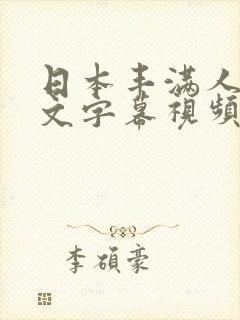 日本丰满人
文字幕視頻
李碩豪